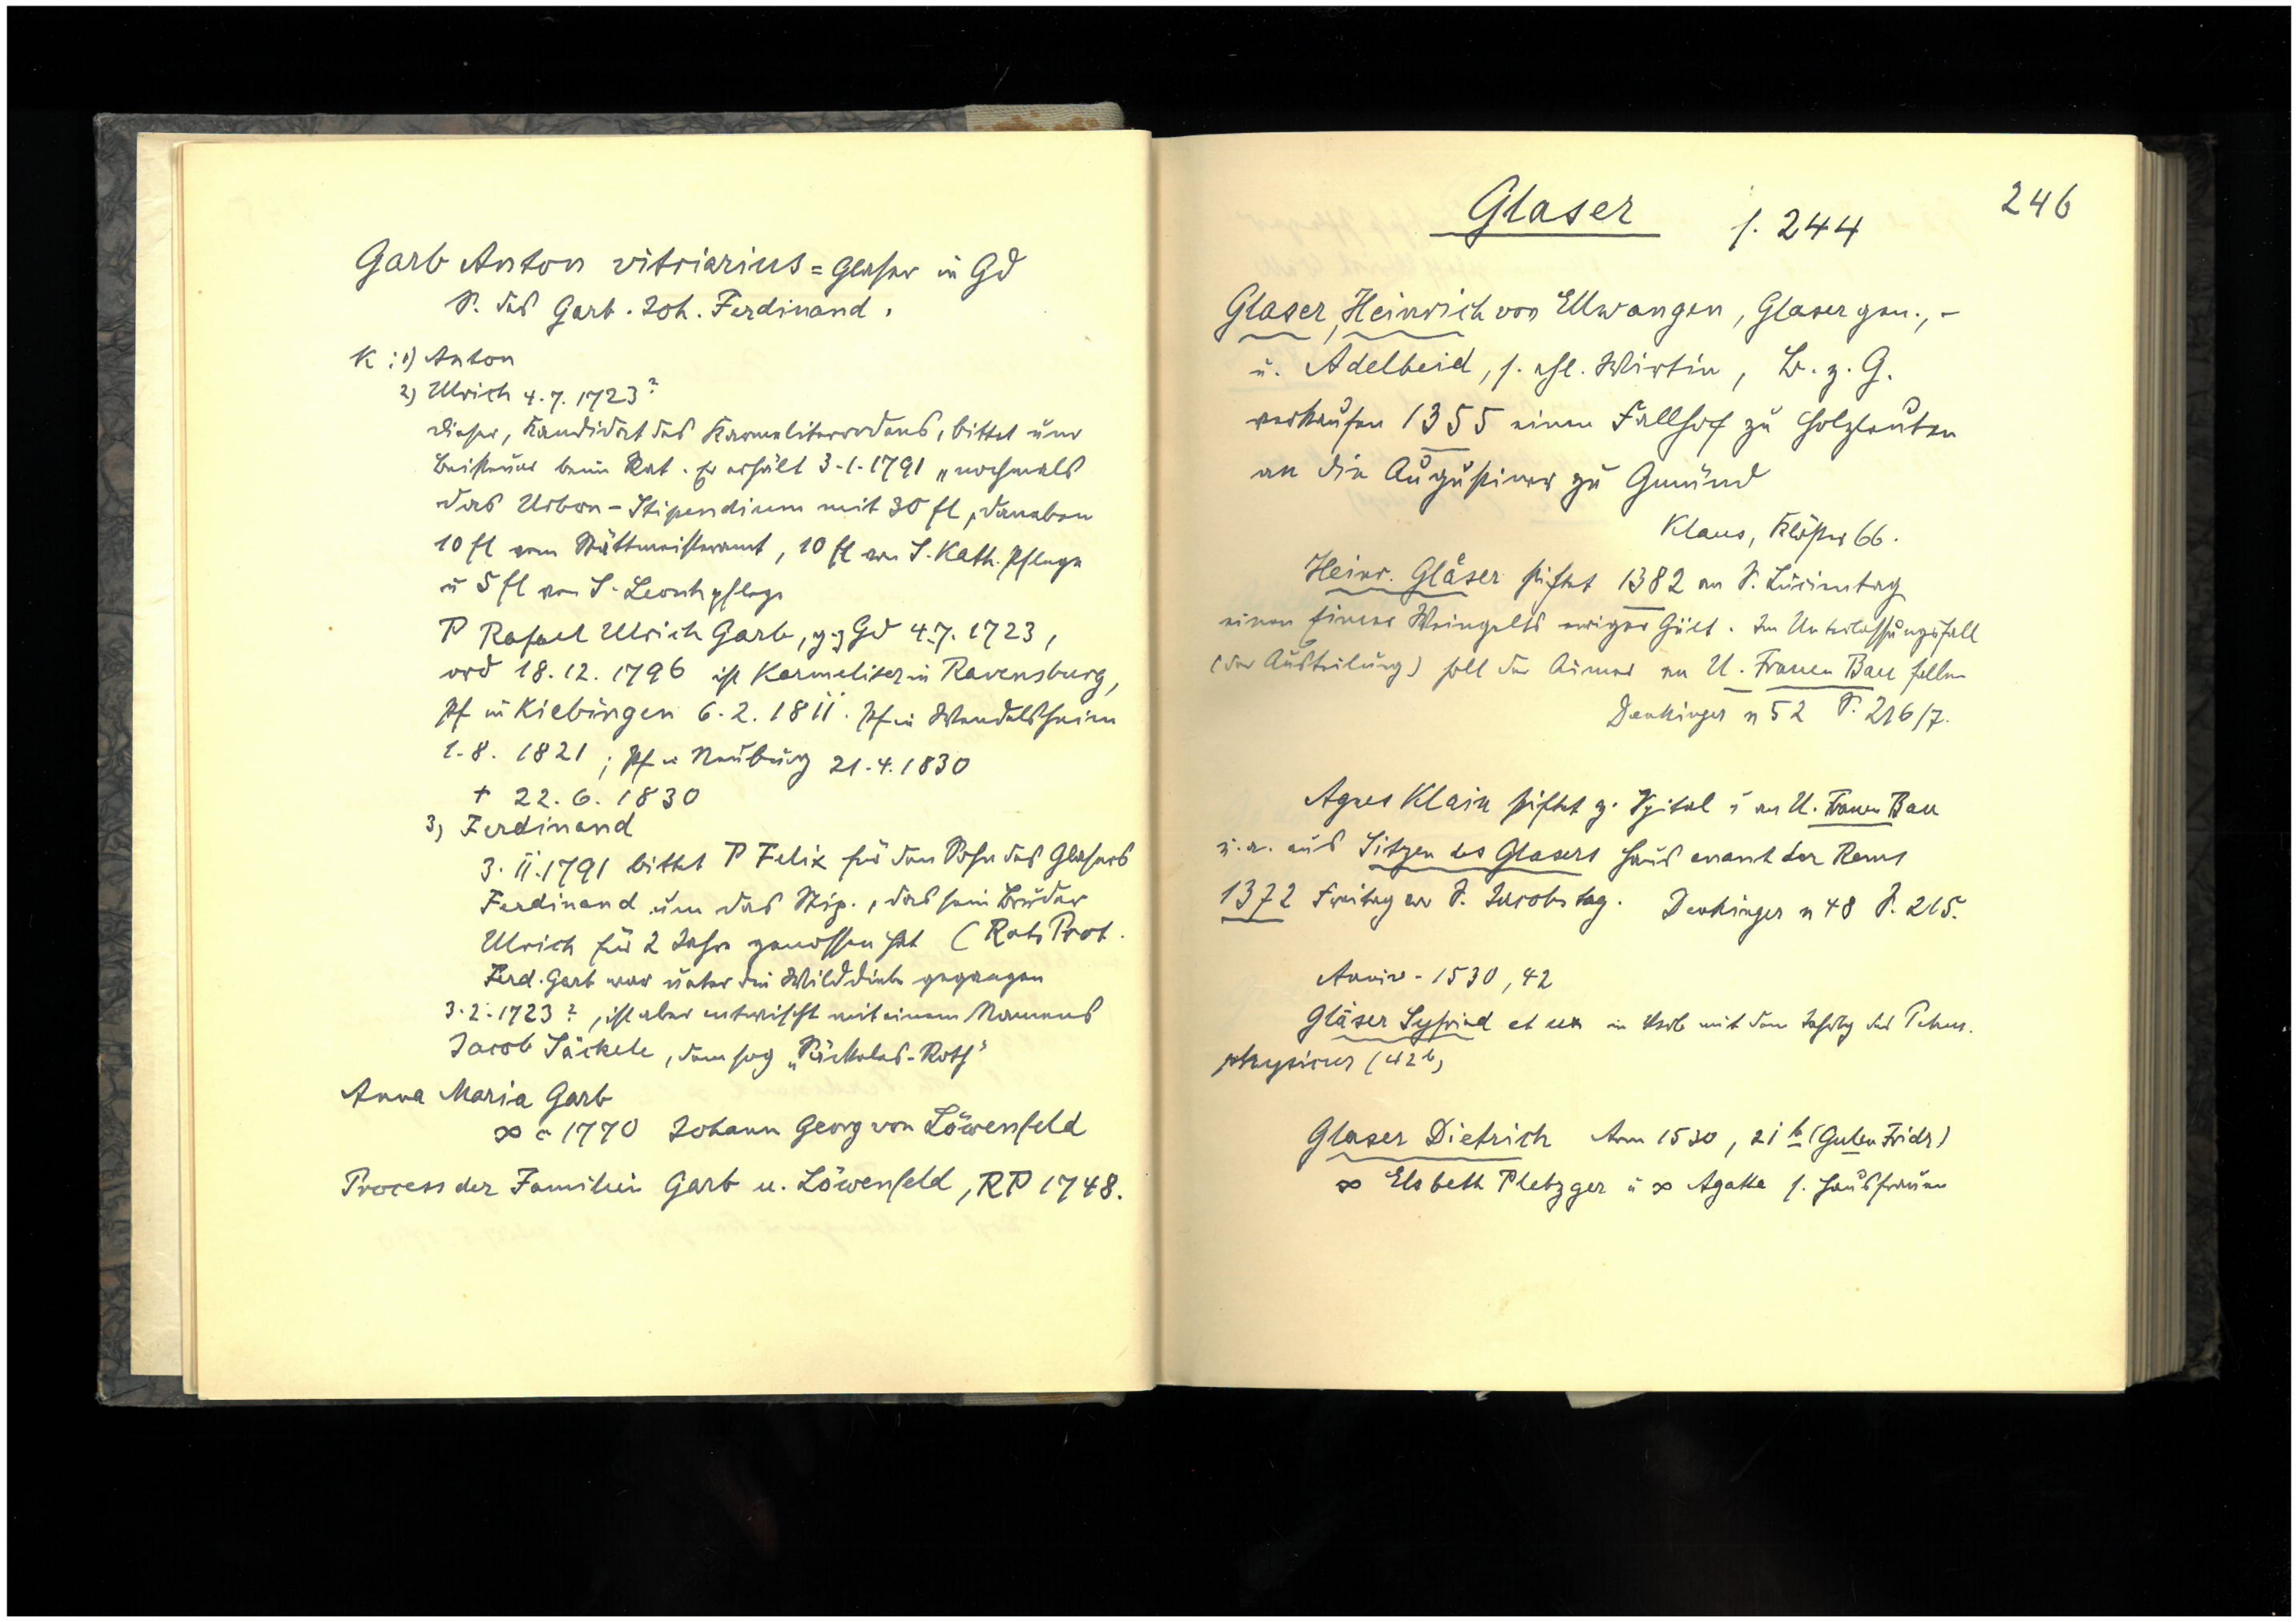 Garb Anton vitriarius = Glaser in Gd
S. des Garb. Joh. Ferdinand.
K: 1) Anton
2) Ulrich 4.7.1723?
dieser, Kandidat des Karmeliterordens, bittet um
Beisteuer beim Rat. Er erhält 3.1.1791 „nochmals
das Urbon-Stipendium mit 30 fl, daneben
10 fl vom Stättmeisteramt, 10 fl von S. Kath. Pflege
u 5 fl von S. Leonh pflege
P Rafael Ulrich Garb, g. z Gd 4.7.1723,
ord 18.12.1796 ist Karmeliter in Ravensburg,
Pf in Kiebingen 6.2.1811. Pf in Wendelsheim
1.8.1821; Pf in Neuburg 21.4.1830
† 22.6.1830
3) Ferdinand
3.11.1791 bittet P Felix für den Sohn des Glasers
Ferdinand um das Stip., das sein Bruder
Ulrich für 2 Jahre genossen hat (Rats Prot.
Ferd. Garb war unter die Wilddiebe gegangen
3.2.1723?, ist aber entwischt mit einem Namens
Jacob Säckele, dem sog „Säckeles-Roth"
Anna Maria Garb
∞ c 1770 Johann Georg von Löwenfeld
Process der Familien Garb u. Löwenfeld, RP 1748.
246
Glaser s. 244
Glaser, Heinrich von Ellwangen, Glaser gen., -
u. Adelheid, s. ehl. Wirtin, B. z. G.
verkaufen 1355 einen Fallhof zu Holzleuten
an die Augustiner zu Gmünd
Klaus, Klöster 66.
Heinr. Gläser stiftet 1382 an S. Luzientag
einen Eimer Weingelts ewiger Gült. Im Unterlassungsfall
(der Austeilung) soll der Aimer an U. Frauen Bau fallen
Denkinger n 52 S. 216/7.
Agnes Klain stiftet z. Spital u an U. Frauen Bau
u. a. aus Sitzen des Glasers Haus enant der Rems
1372 Freitag vor S. Jacobstag. Denkinger n 48 S. 215.
Anniv. 1530, 42
Gläser Syfried et ux in Verb mit dem Jahrtg des Petrus.
physicus (42b)
Glaser Dietrich Ann 1530, 21 b (Guten Fridr)
∞ Elsbeth Pletzger u ∞ Agatha s. Hausfrauen